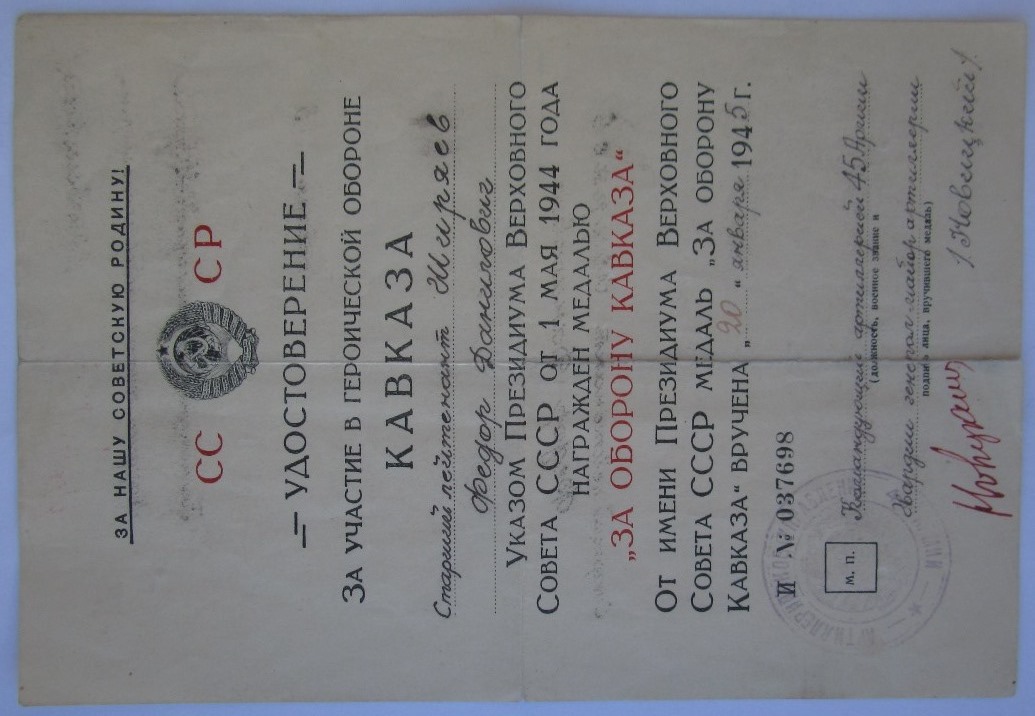 ЗА НАШУ СОВЕТСКУЮ РОДИНУ!
СС СР
УДОСТОВЕРЕНИЕ
ЗА УЧАСТИЕ В ГЕРОИЧЕСКОЙ ОБОРОНЕ
КАВКАЗА
Старший лейтенант Ширяев
Федор Данилович
УКАЗОМ ПРЕЗИДИУМА ВЕРХОВНОГО
СОВЕТА СССР ОТ 1 МАЯ 1944 ГОДА
НАГРАЖДЕН МЕДАЛЬЮ
„ЗА ОБОРОНУ КАВКАЗА“
ОТ ИМЕНИ ПРЕЗИДИУМА ВЕРХОВНОГО
СОВЕТА СССР МЕДАЛЬ „ЗА ОБОРОНУ
КАВКАЗА“ ВРУЧЕНА „20“ января 1945 Г.
И № 037698
Командующий артиллерией 45 Армии
(должность, военное звание и
М. П.
Гвардии генерал-майор артиллерии
подпись лица, вручившего медаль)
/Новицкий/